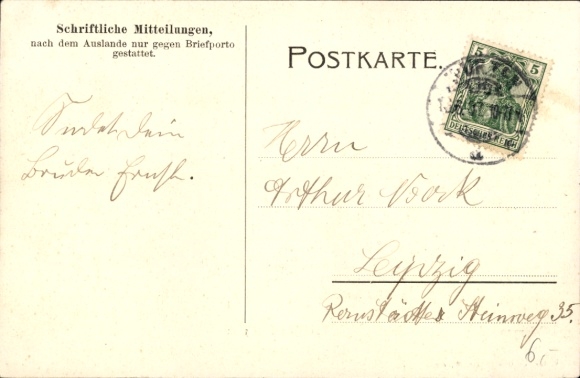 Schriftliche Mitteilungen,
nach dem Auslande nur gegen Briefporto
gestattet.
POSTKARTE.
5 5
DEUTSCHES REICH
Sendet Dein
Bruder Ernst.
Herrn
Arthur Bock
Leipzig
Steinweg 35.
6,-